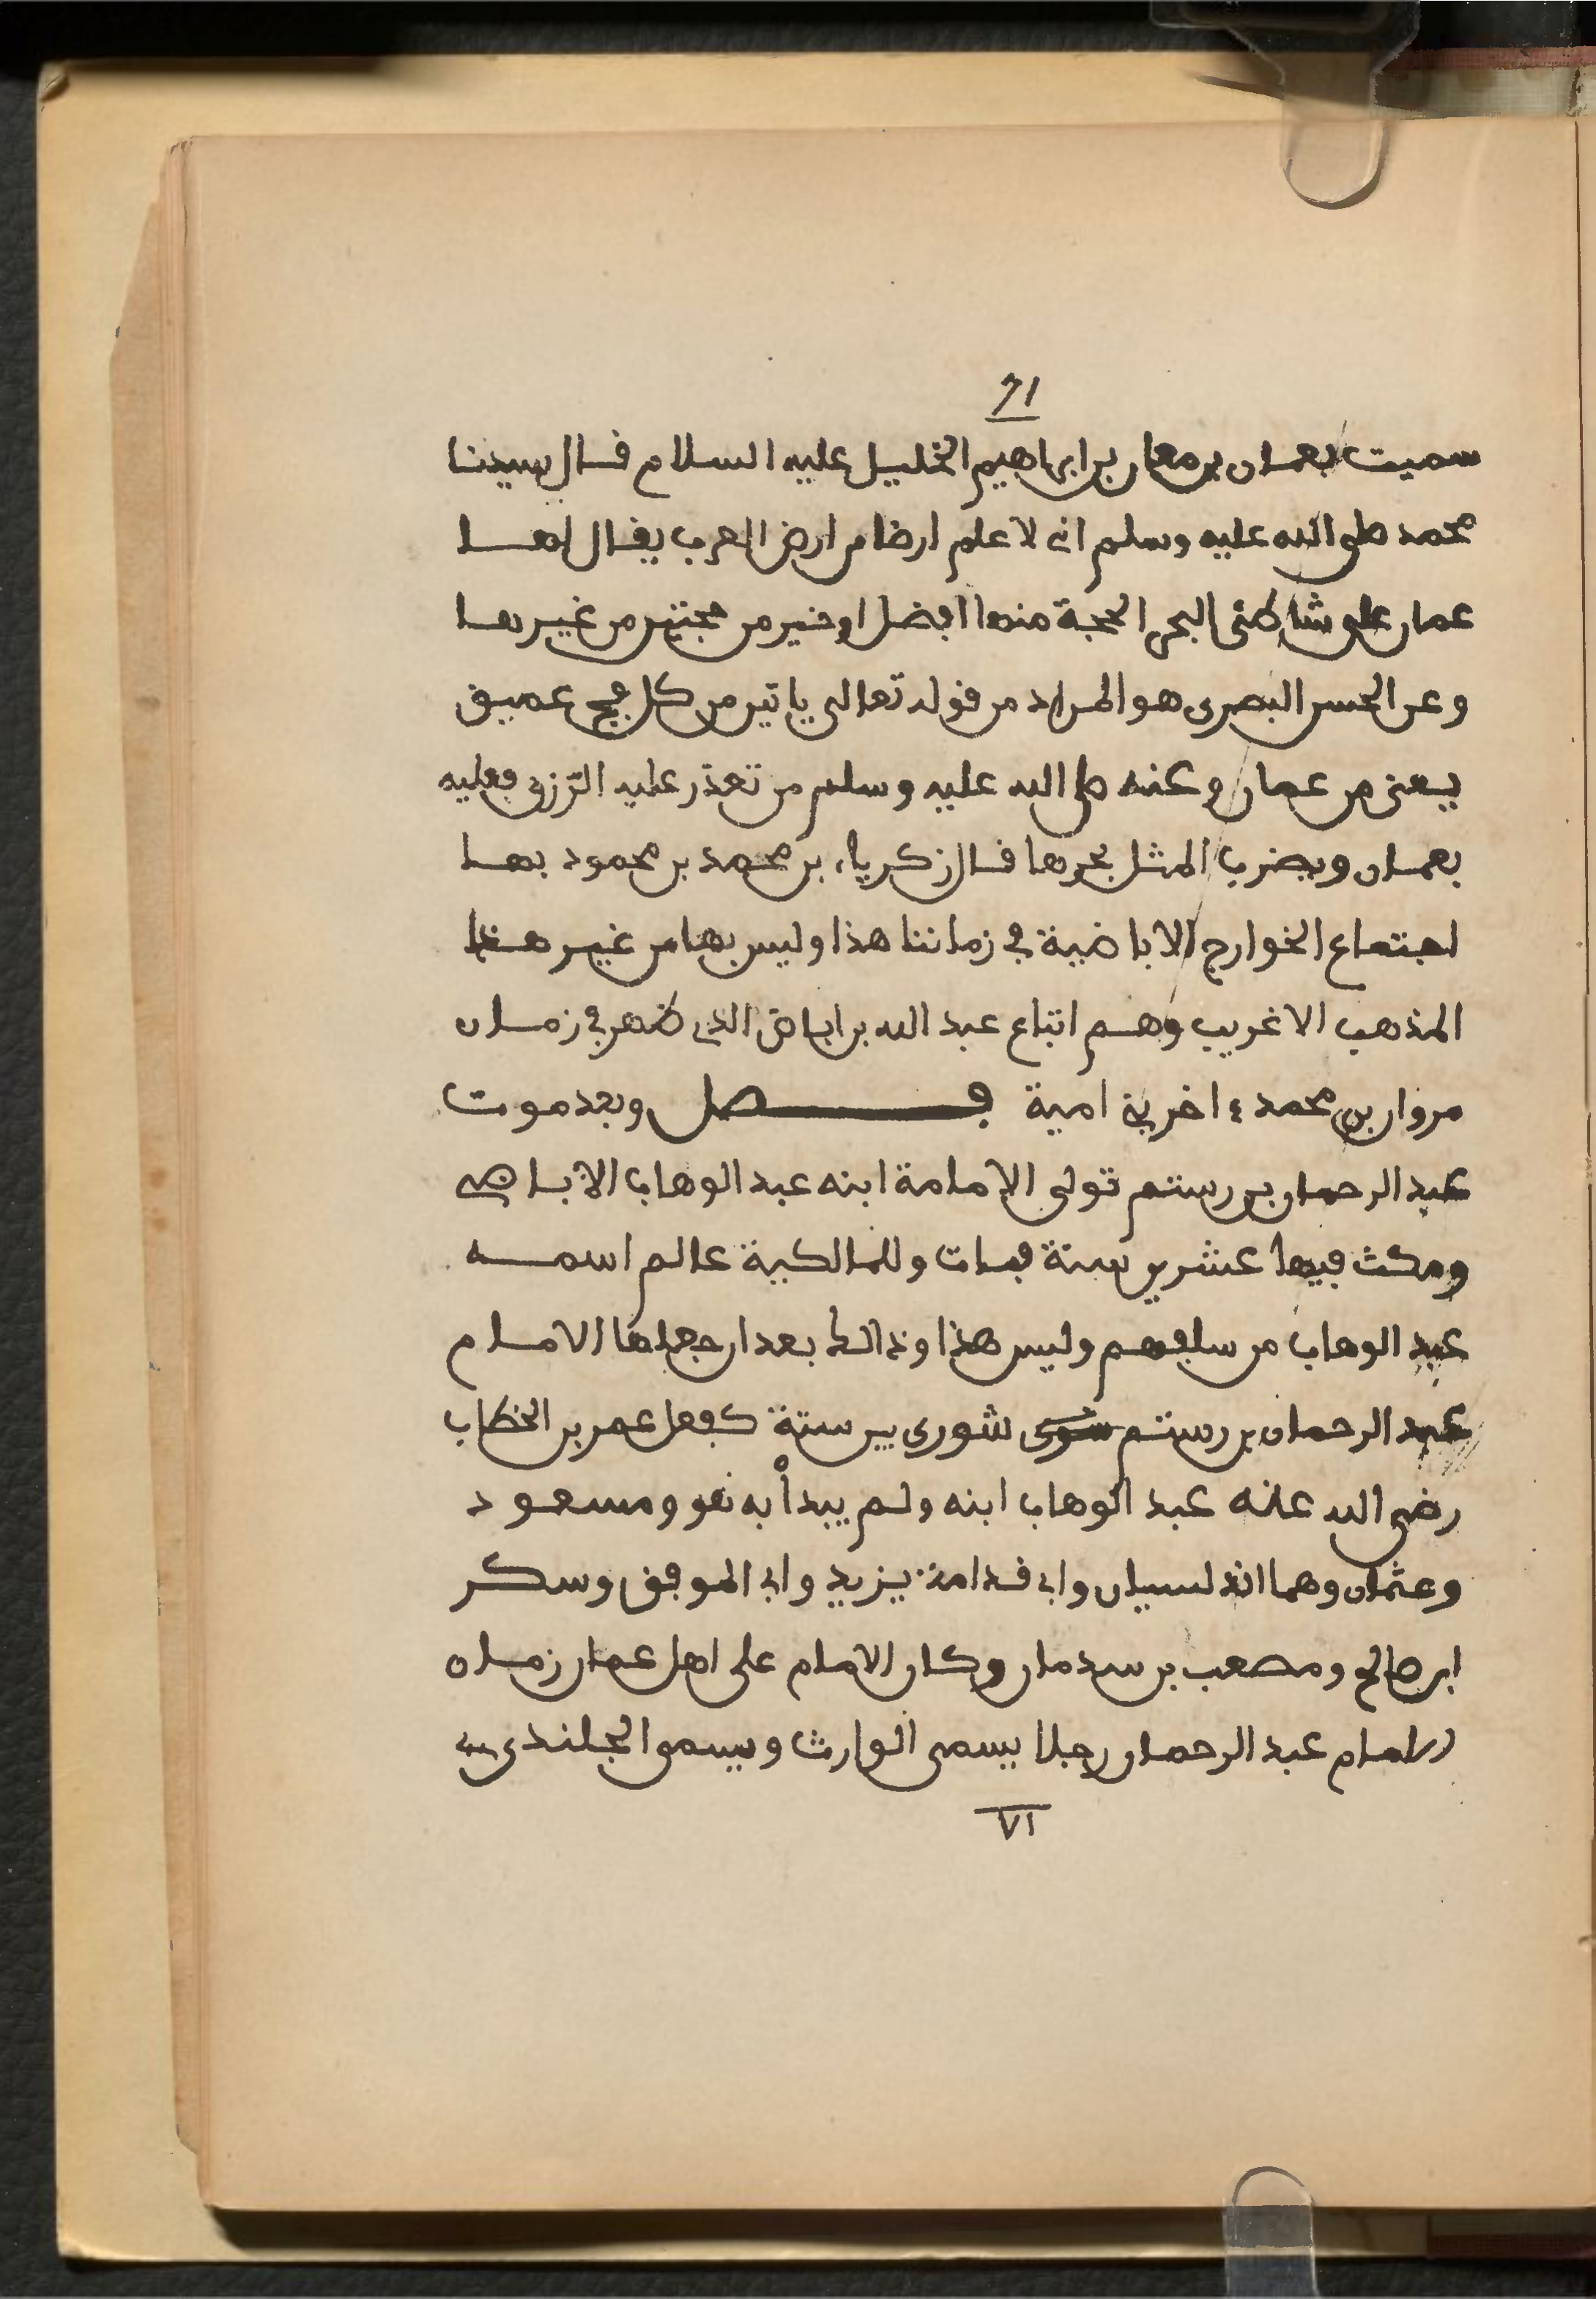 71
سميت بعمان بن معان بن ابراهيم الخليل عليه السلام قال سيدنا
محمد صلى الله عليه وسلم انى لاعلم ارضا من ارض العرب يقال لها
عمان على شاطئى البحر الحجة منها افضل او خير من حجتين من غيرها
وعن الحسن البصرى هو المراد من قوله تعالى ياتين من كل فج عميق
يعنى من عمان وعنه صلى الله عليه وسلم من تعذر عليه الرّزق فعليه
بعمان ويضرب المثل بحرها قال زكرياء بن محمد بن محمود بها
اجتماع الخوارج الاباضية في زماننا هذا وليس بها من غير هذا
المذهب الا غريب وهم اتباع عبد الله بن اباض الذى ظهر في زمان
مروان بن محمد ءاخر بنى امية فصل وبعد موت
عبد الرحمان بن رستم تولى الامامة ابنه عبد الوهاب الاباضى
ومكث فيها عشرين سنة فمات وللمالكية عالم اسمه
عبد الوهاب من سلفهم وليس هذا وذالك بعد ان جعلها الامام
عبد الرحمان بن رستم شورى بين ستة كفعل عمر بن الخطاب
رضى الله عنه عبد الوهاب ابنه ولم يبدأ به نفو ومسعود
وعثمان وهما اندلسيان وابى قدامة يزيد وابى الموفق وسكر
ابن صالح ومصعب بن سدمان وكان الامام على اهل عمان زمان
الامام عبد الرحمان رجلا يسمى الوارث ويسمى الجلندى
٧١